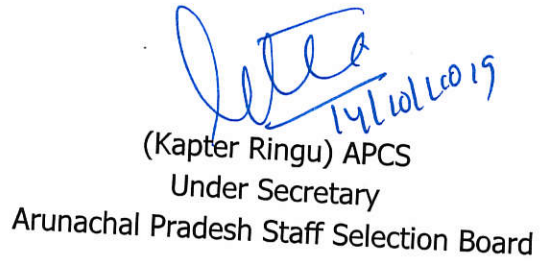 14/10/2019
(Kapter Ringu) APCS
Under Secretary
Arunachal Pradesh Staff Selection Board